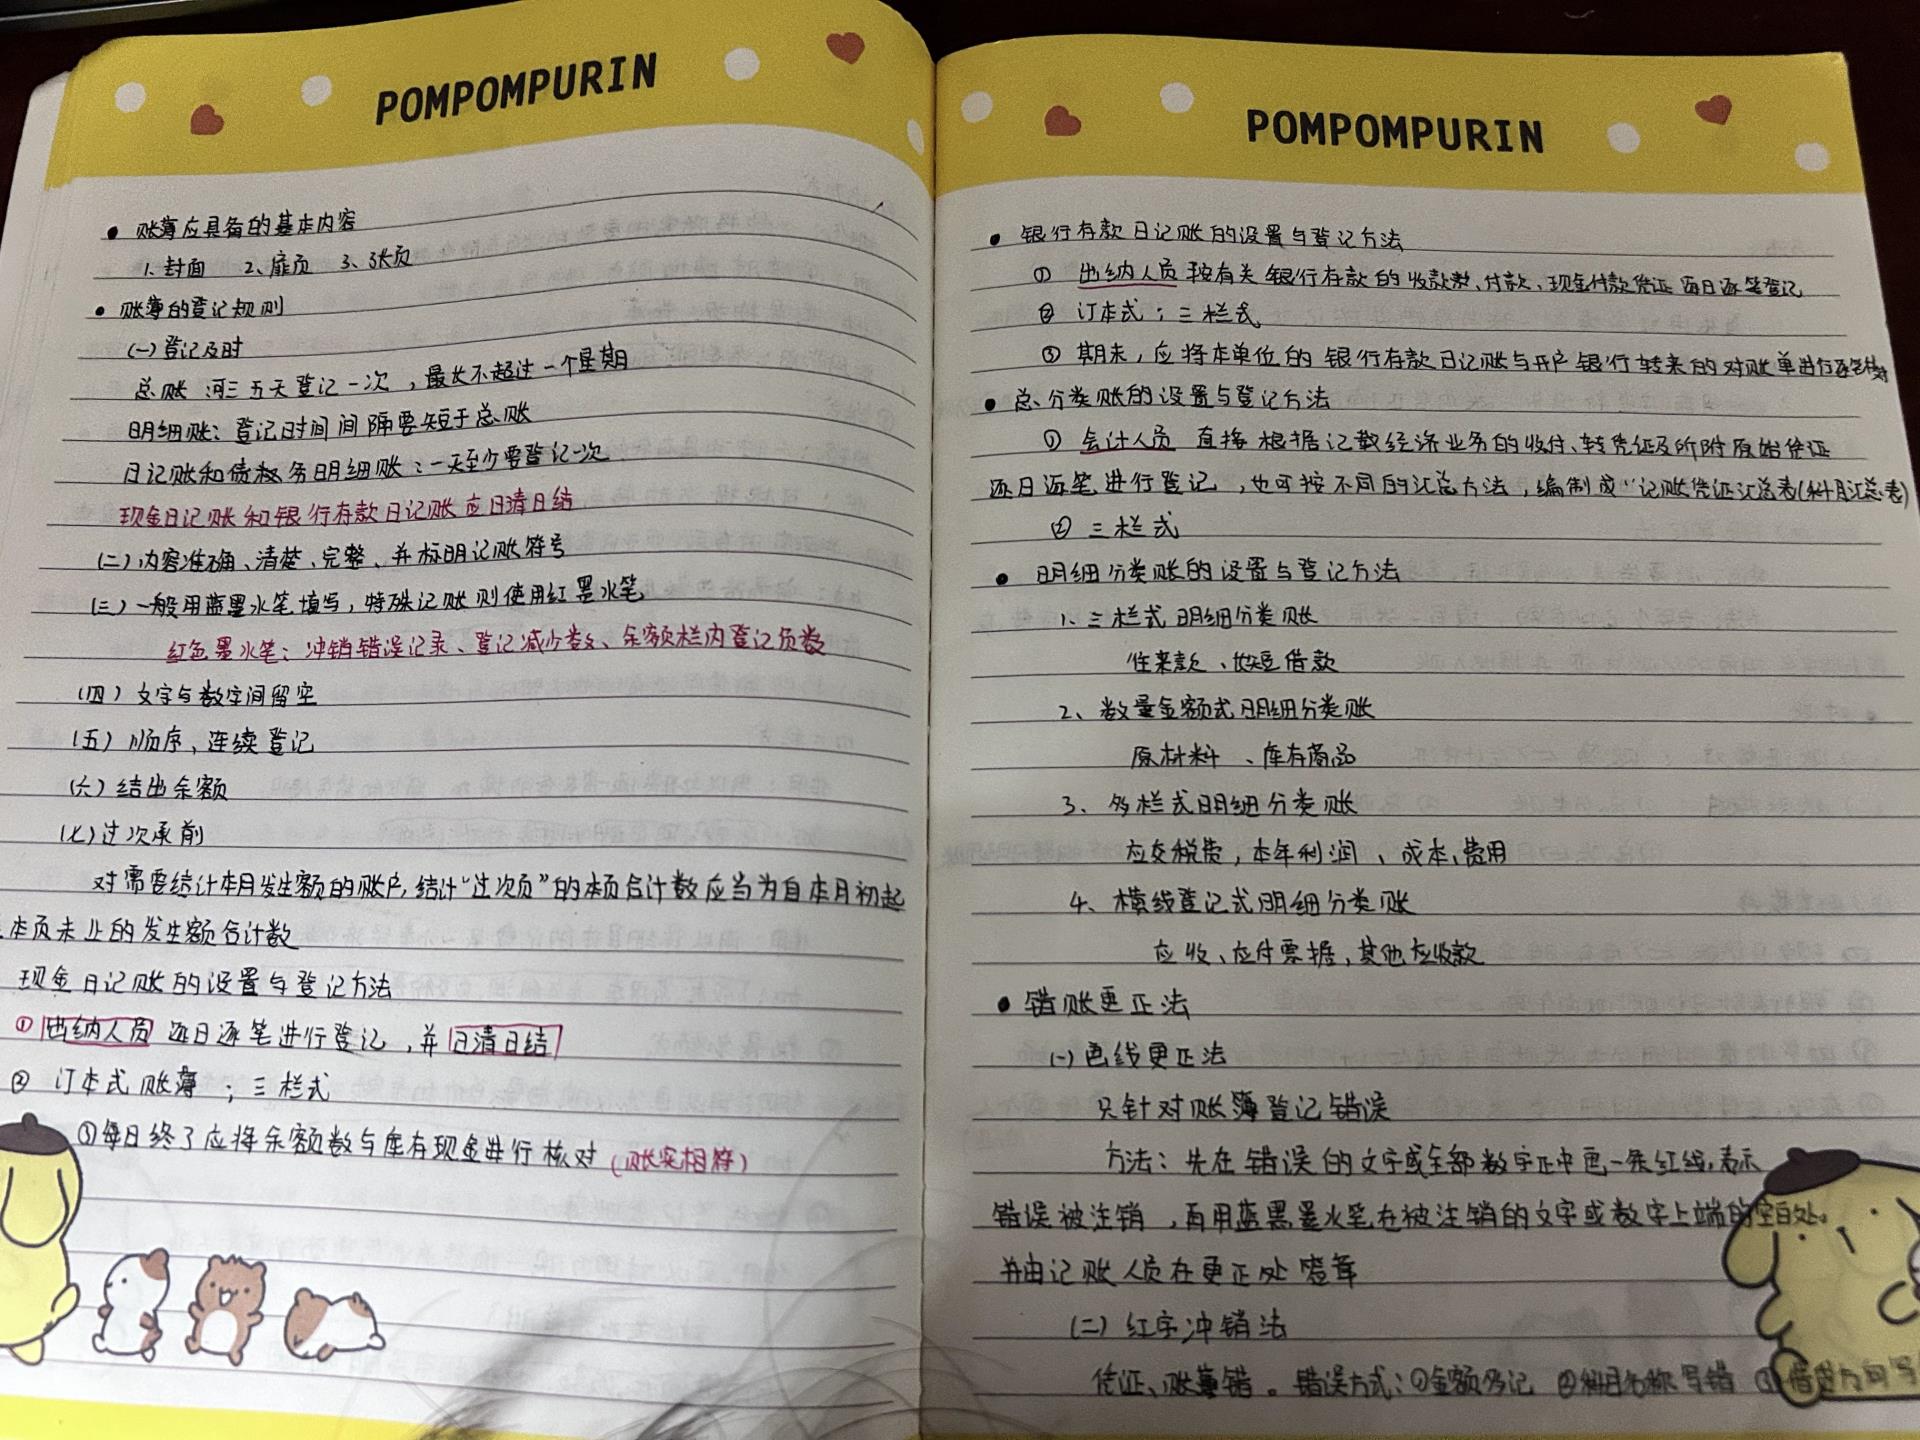 POMPOMPURIN
• 账薄应具备的基本内容
1、封面 2、扉页 3、张页
• 账薄的登记规则
(一)登记及时
总账：三五天登记一次，最长不超过一个星期
明细账：登记时间间隔要短于总账
日记账和债权务明细账：一天至少要登记一次
现金日记账和银行存款日记账应日清日结
(二)内容准确、清楚、完整、并标明记账符号
(三)一般用蓝墨水笔填写，特殊记账则使用红墨水笔
红色墨水笔：冲销错误记录、登记减少数、余额栏内登记负数
(四)文字与数字间留空
(五)顺序、连续登记
(六)结出余额
(七)过次承前
对需要结计本月发生额的账户，结计“过次页”的本页合计数应当为自本月初起
本页末止的发生额合计数
现金日记账的设置与登记方法
① 出纳人员 逐日逐笔进行登记，并日清日结
② 订本式账薄；三栏式
③每日终了应将余额数与库存现金进行核对(账实相符)
POMPOMPURIN
• 银行存款日记账的设置与登记方法
① 出纳人员 按有关银行存款的收款、付款、现金付款凭证逐日逐笔登记
② 订本式；三栏式
③ 期末，应将本单位的银行存款日记账与开户银行转来的对账单进行逐笔核对
• 总分类账的设置与登记方法
① 会计人员 直接根据记载经济业务的收付、转凭证及所附原始凭证
逐日逐笔进行登记，也可按不同的汇总方法，编制成“记账凭证汇总表(科目汇总表)
② 三栏式
• 明细分类账的设置与登记方法
1、三栏式明细分类账
往来款、长短借款
2、数量金额式明细分类账
原材料、库存商品
3、多栏式明细分类账
应交税费，本年利润、成本、费用
4、横线登记式明细分类账
应收、应付票据，其他应收款
• 错账更正法
(一)画线更正法
只针对账薄登记错误
方法：先在错误的文字或全部数字正中画一条红线，表示
错误被注销，再用蓝黑墨水笔在被注销的文字或数字上端的空白处。
并由记账人员在更正处签章
(二)红字冲销法
凭证、账薄错。错误方式：①金额多记 ②科目名称写错 ③借贷方向写